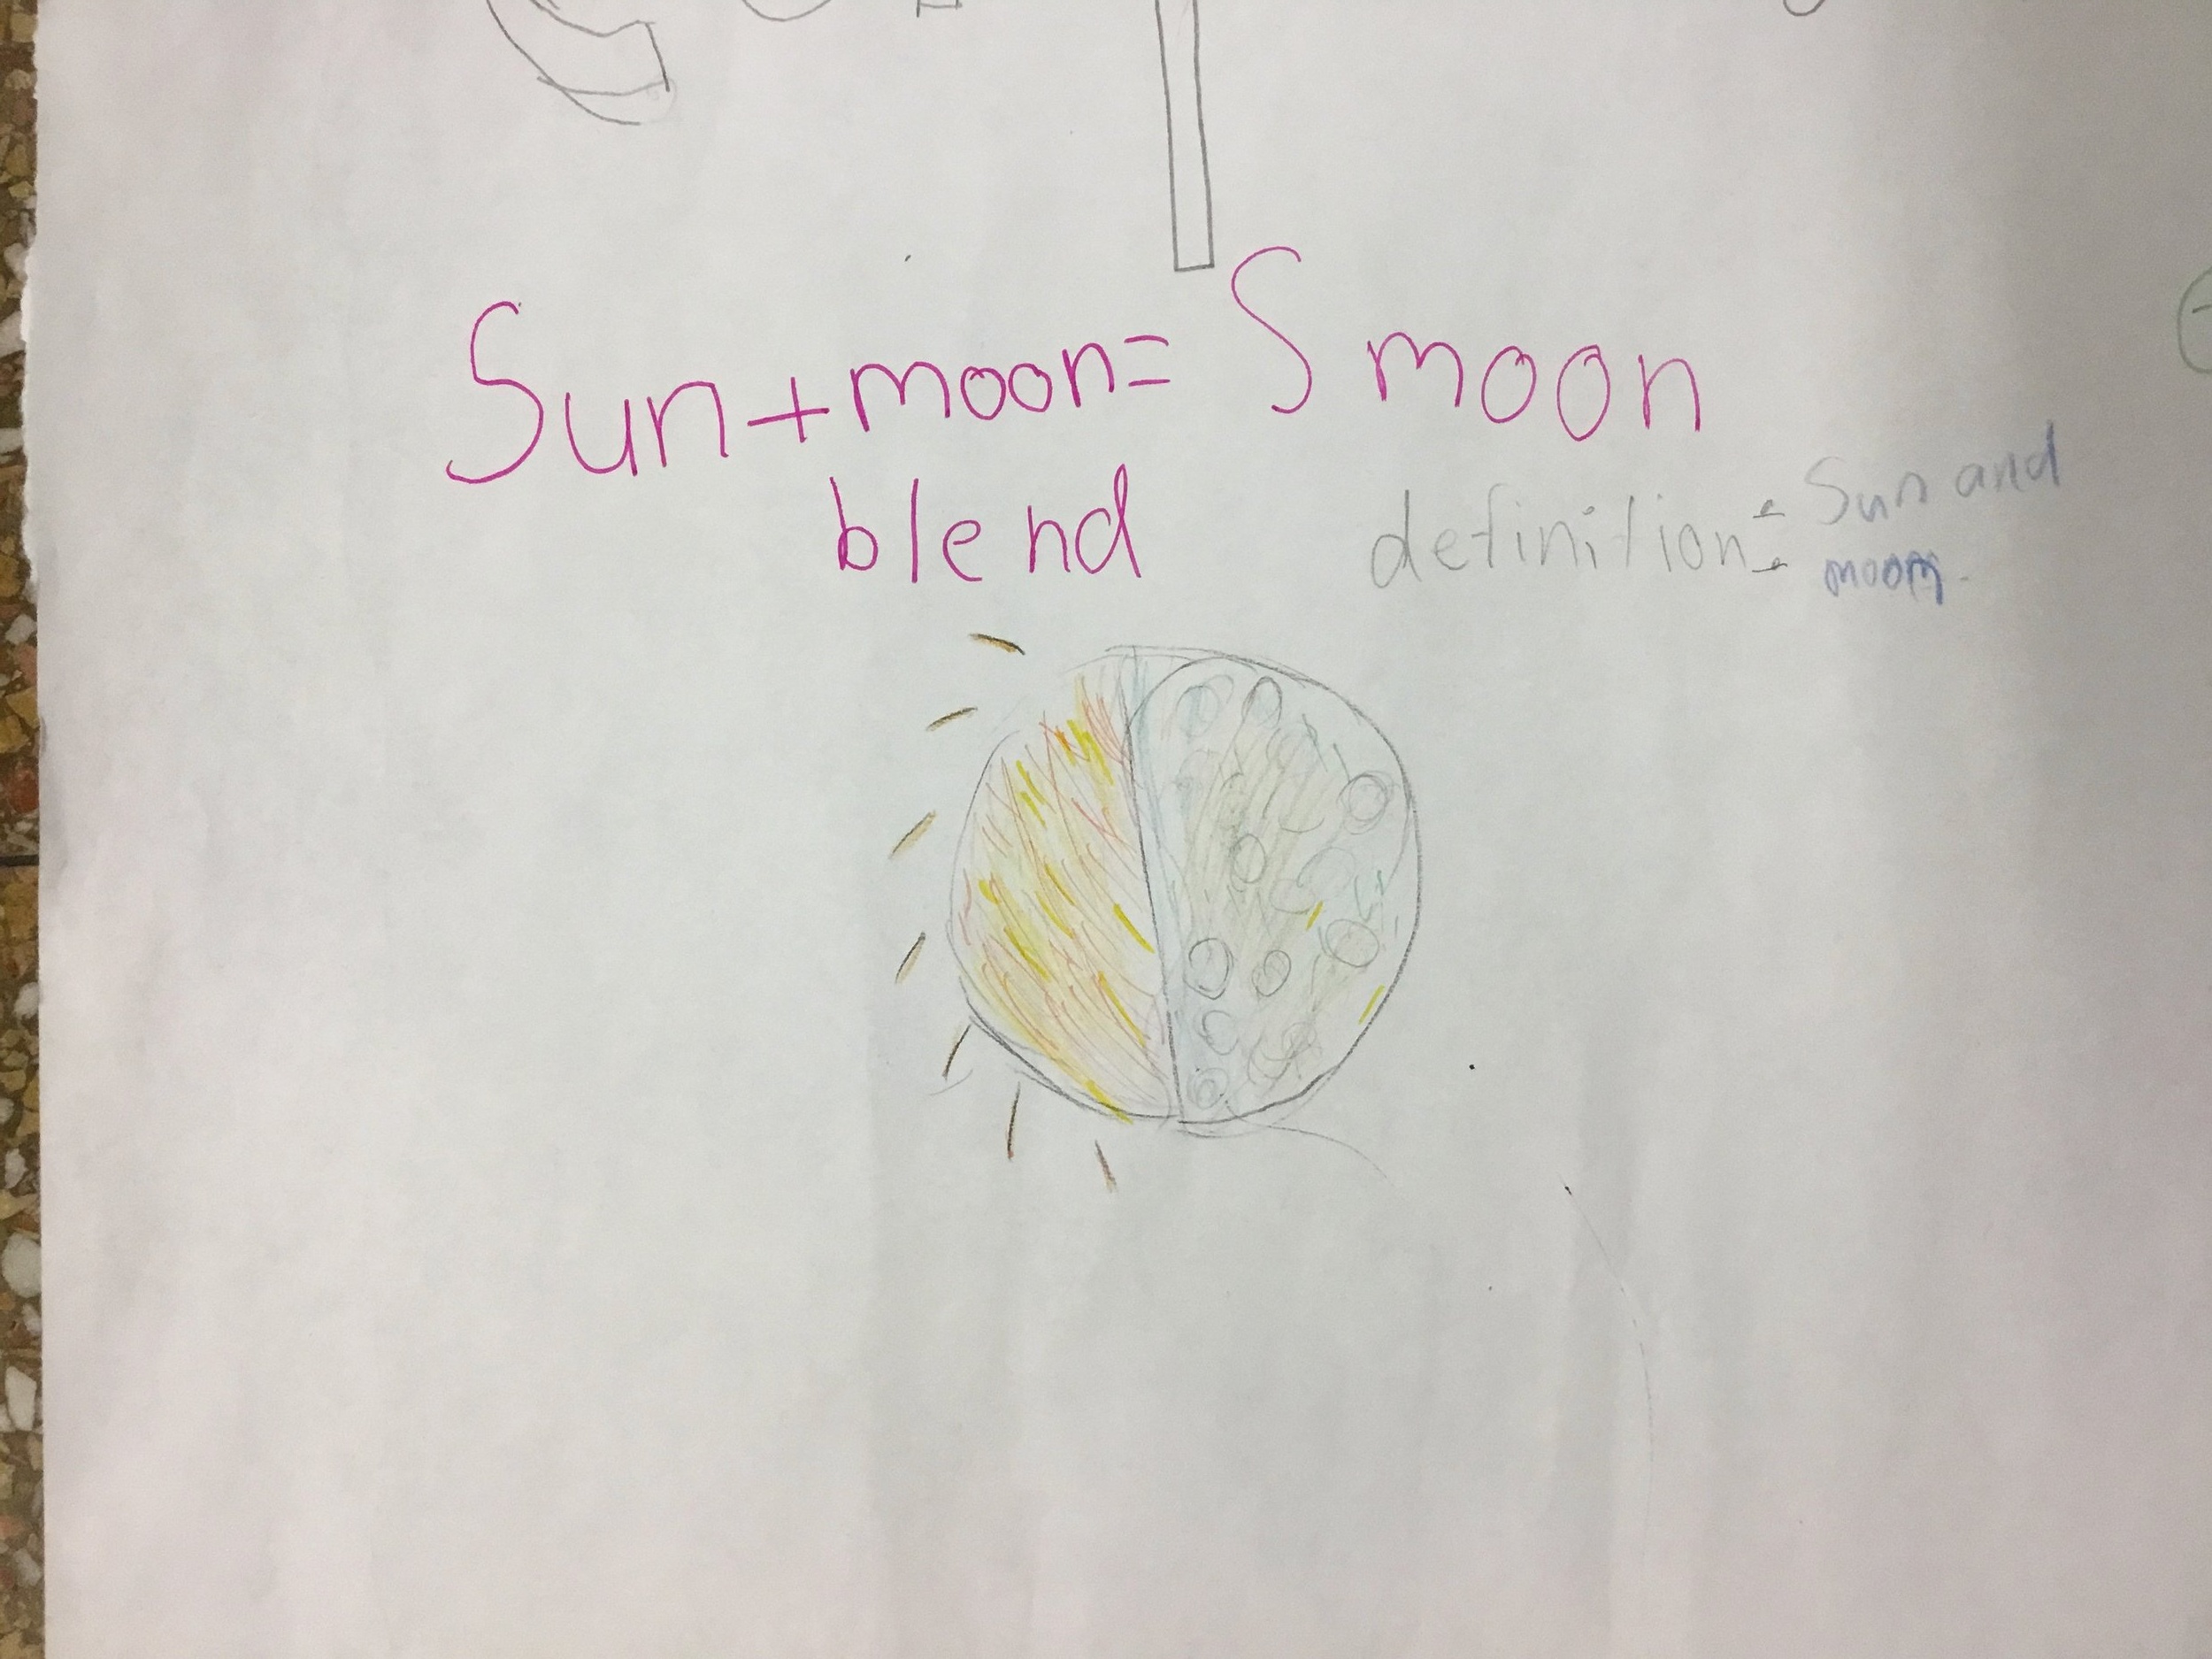 Sun+moon= Smoon
blend
definition: Sun and
moon.